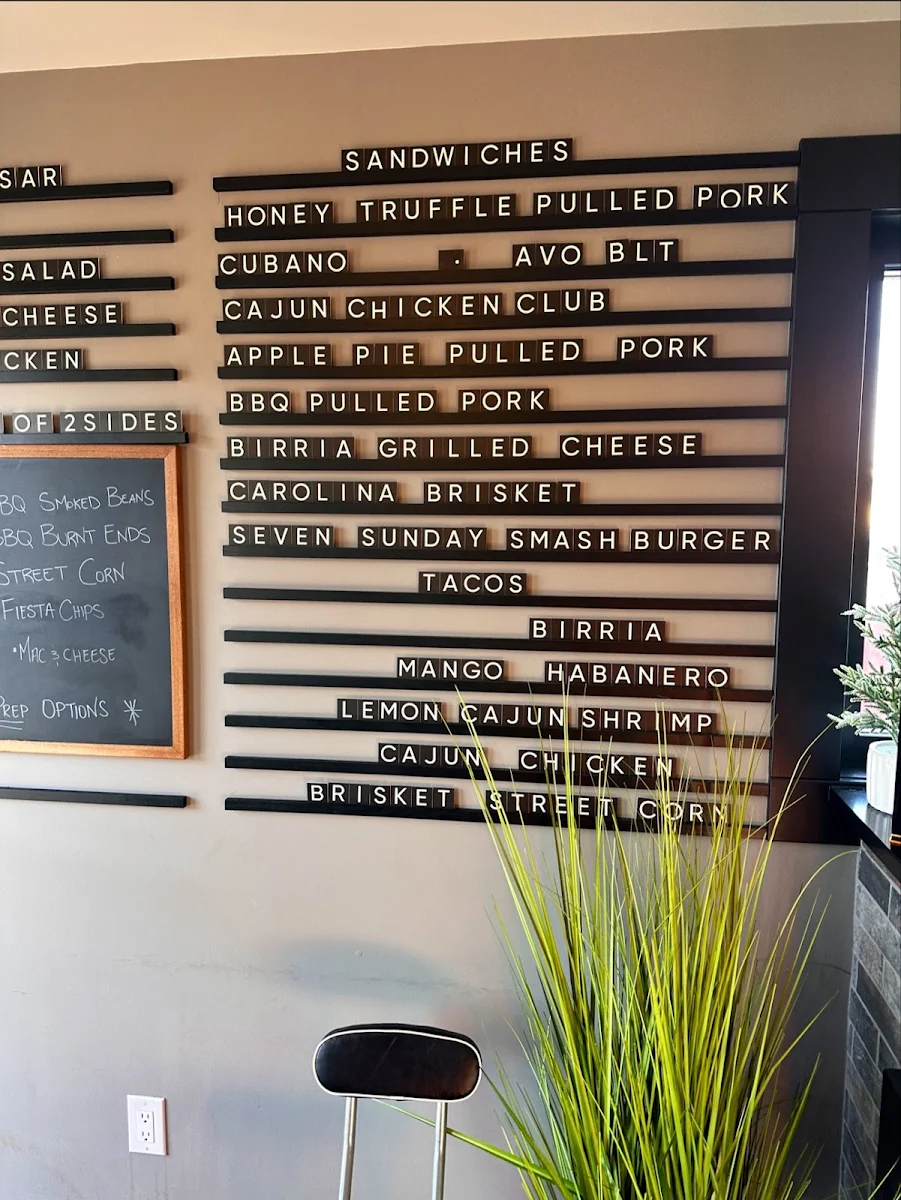 SAR
SALAD
CHEESE
CKEN
OF 2 SIDES
BQ SMOKED BEANS
BBQ BURNT ENDS
STREET CORN
FIESTA CHIPS
•MAC & CHEESE
PREP OPTIONS *
SANDWICHES
HONEY TRUFFLE PULLED PORK
CUBANO . AVO BLT
CAJUN CHICKEN CLUB
APPLE PIE PULLED PORK
BBQ PULLED PORK
BIRRIA GRILLED CHEESE
CAROLINA BRISKET
SEVEN SUNDAY SMASH BURGER
TACOS
BIRRIA
MANGO HABANERO
LEMON CAJUN SHRIMP
CAJUN CHICKEN
BRISKET STREET CORN